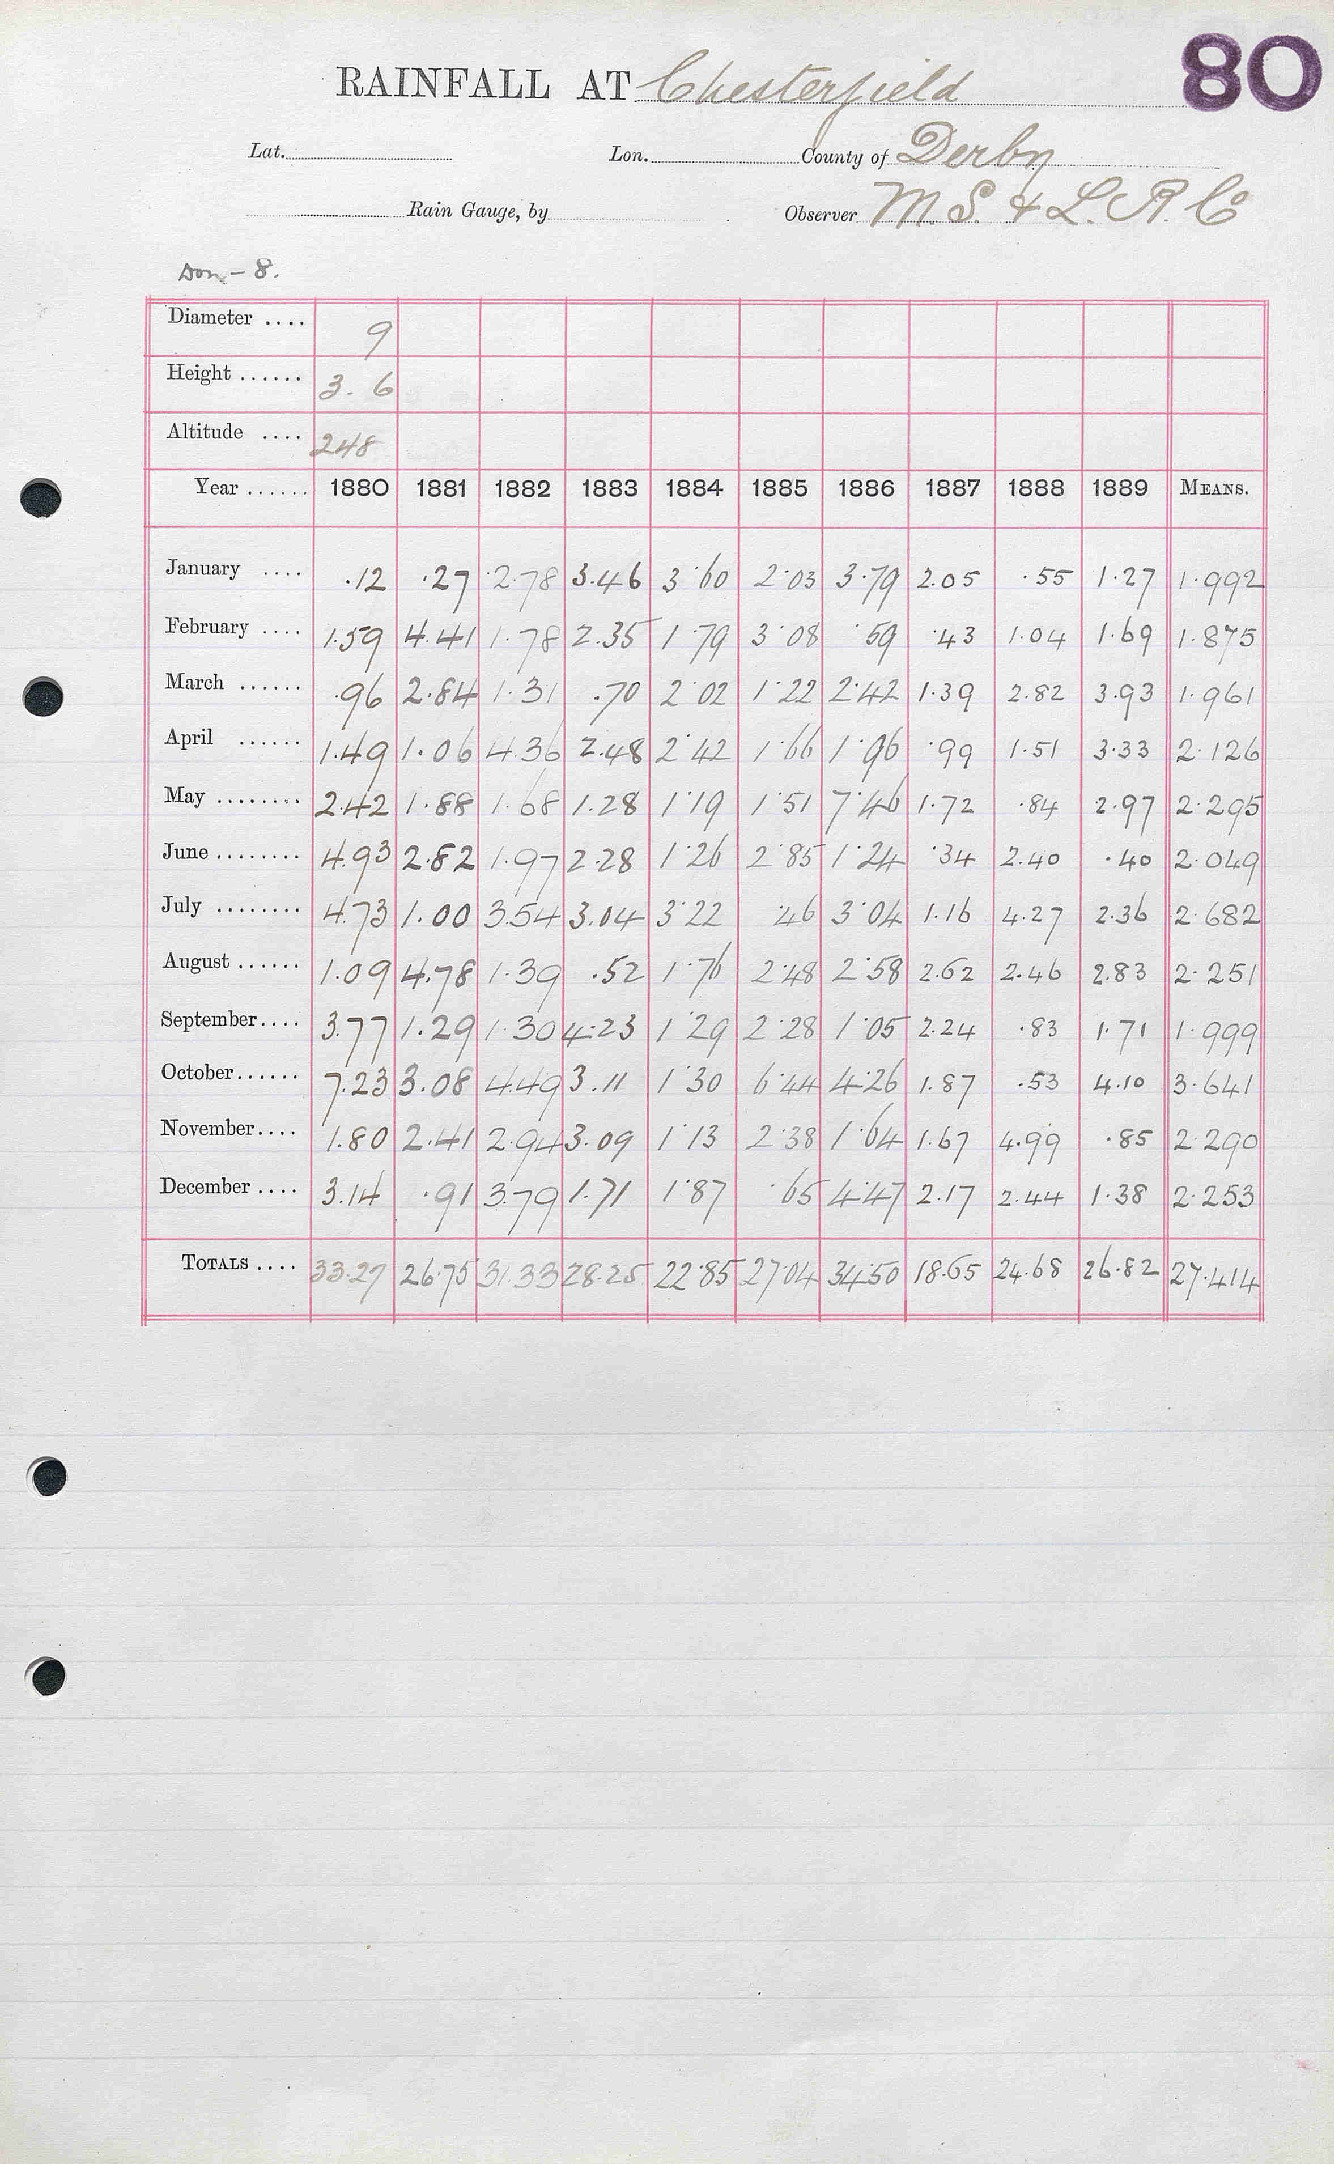 80
RAINFALL AT Chesterfield
Lat. Lon. County of Derby
Rain Gauge, by Observer M. S. & L. R. Co
Don - 8.
Diameter .... 9
Height ...... 3. 6
Altitude .... 248
Year ...... 1880 1881 1882 1883 1884 1885 1886 1887 1888 1889 MEANS.
January .... .12 .27 2.78 3.46 3.60 2.03 3.79 2.05 .55 1.27 1.992
February .... 1.59 4.41 1.78 2.35 1.79 3.08 .59 .43 1.04 1.69 1.875
March ...... .96 2.84 1.31 .70 2.02 1.22 2.42 1.39 2.82 3.93 1.961
April ...... 1.49 1.06 4.36 2.48 2.42 1.66 1.96 .99 1.51 3.33 2.126
May ........ 2.42 1.88 1.68 1.28 1.19 1.51 7.46 1.72 .84 2.97 2.295
June ........ 4.93 2.82 1.97 2.28 1.26 2.85 1.24 .34 2.40 .40 2.049
July ........ 4.73 1.00 3.54 3.04 3.22 .46 3.04 1.16 4.27 2.36 2.682
August ...... 1.09 4.78 1.39 .52 1.76 2.48 2.58 2.62 2.46 2.83 2.251
September.... 3.77 1.29 1.30 4.23 1.29 2.28 1.05 2.24 .83 1.71 1.999
October...... 7.23 3.08 4.49 3.11 1.30 6.44 4.26 1.87 .53 4.10 3.641
November.... 1.80 2.41 2.94 3.09 1.13 2.38 1.64 1.67 4.99 .85 2.290
December .... 3.14 .91 3.79 1.71 1.87 .65 4.47 2.17 2.44 1.38 2.253
TOTALS .... 33.27 26.75 31.33 28.25 22.85 27.04 34.50 18.65 24.68 26.82 27.414